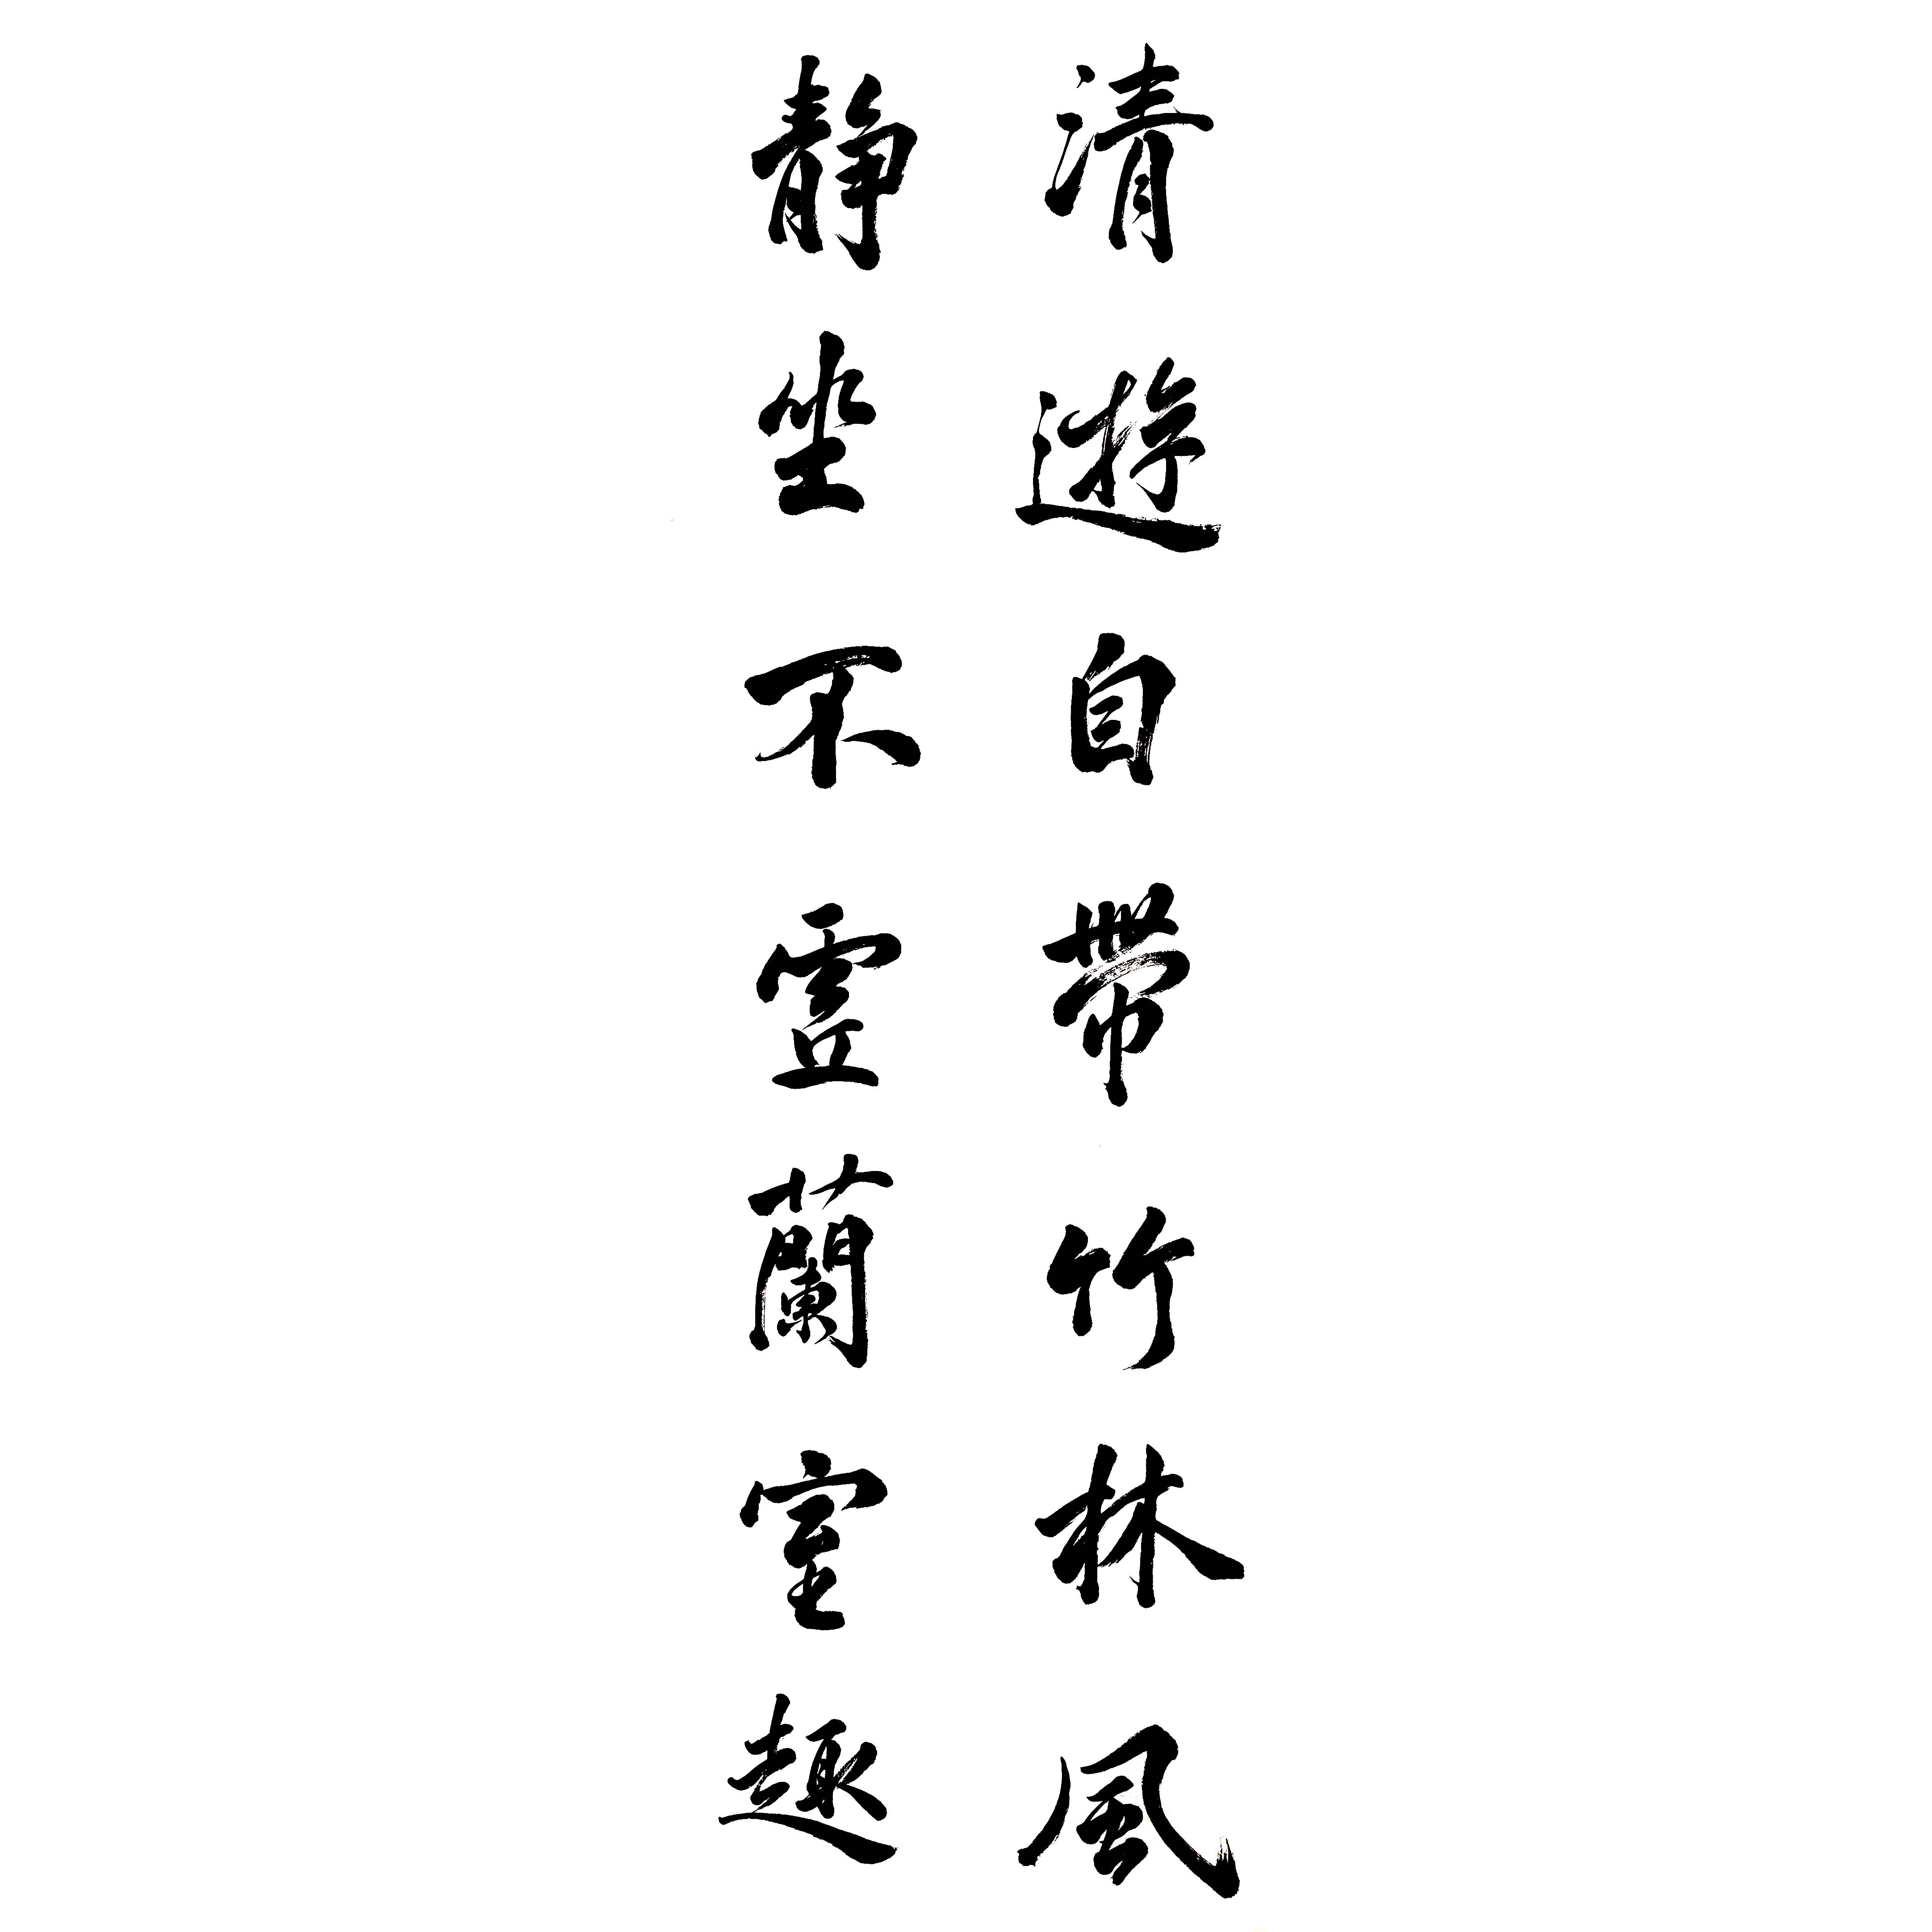 清遊自帶竹林風
靜坐不虛蘭室趣